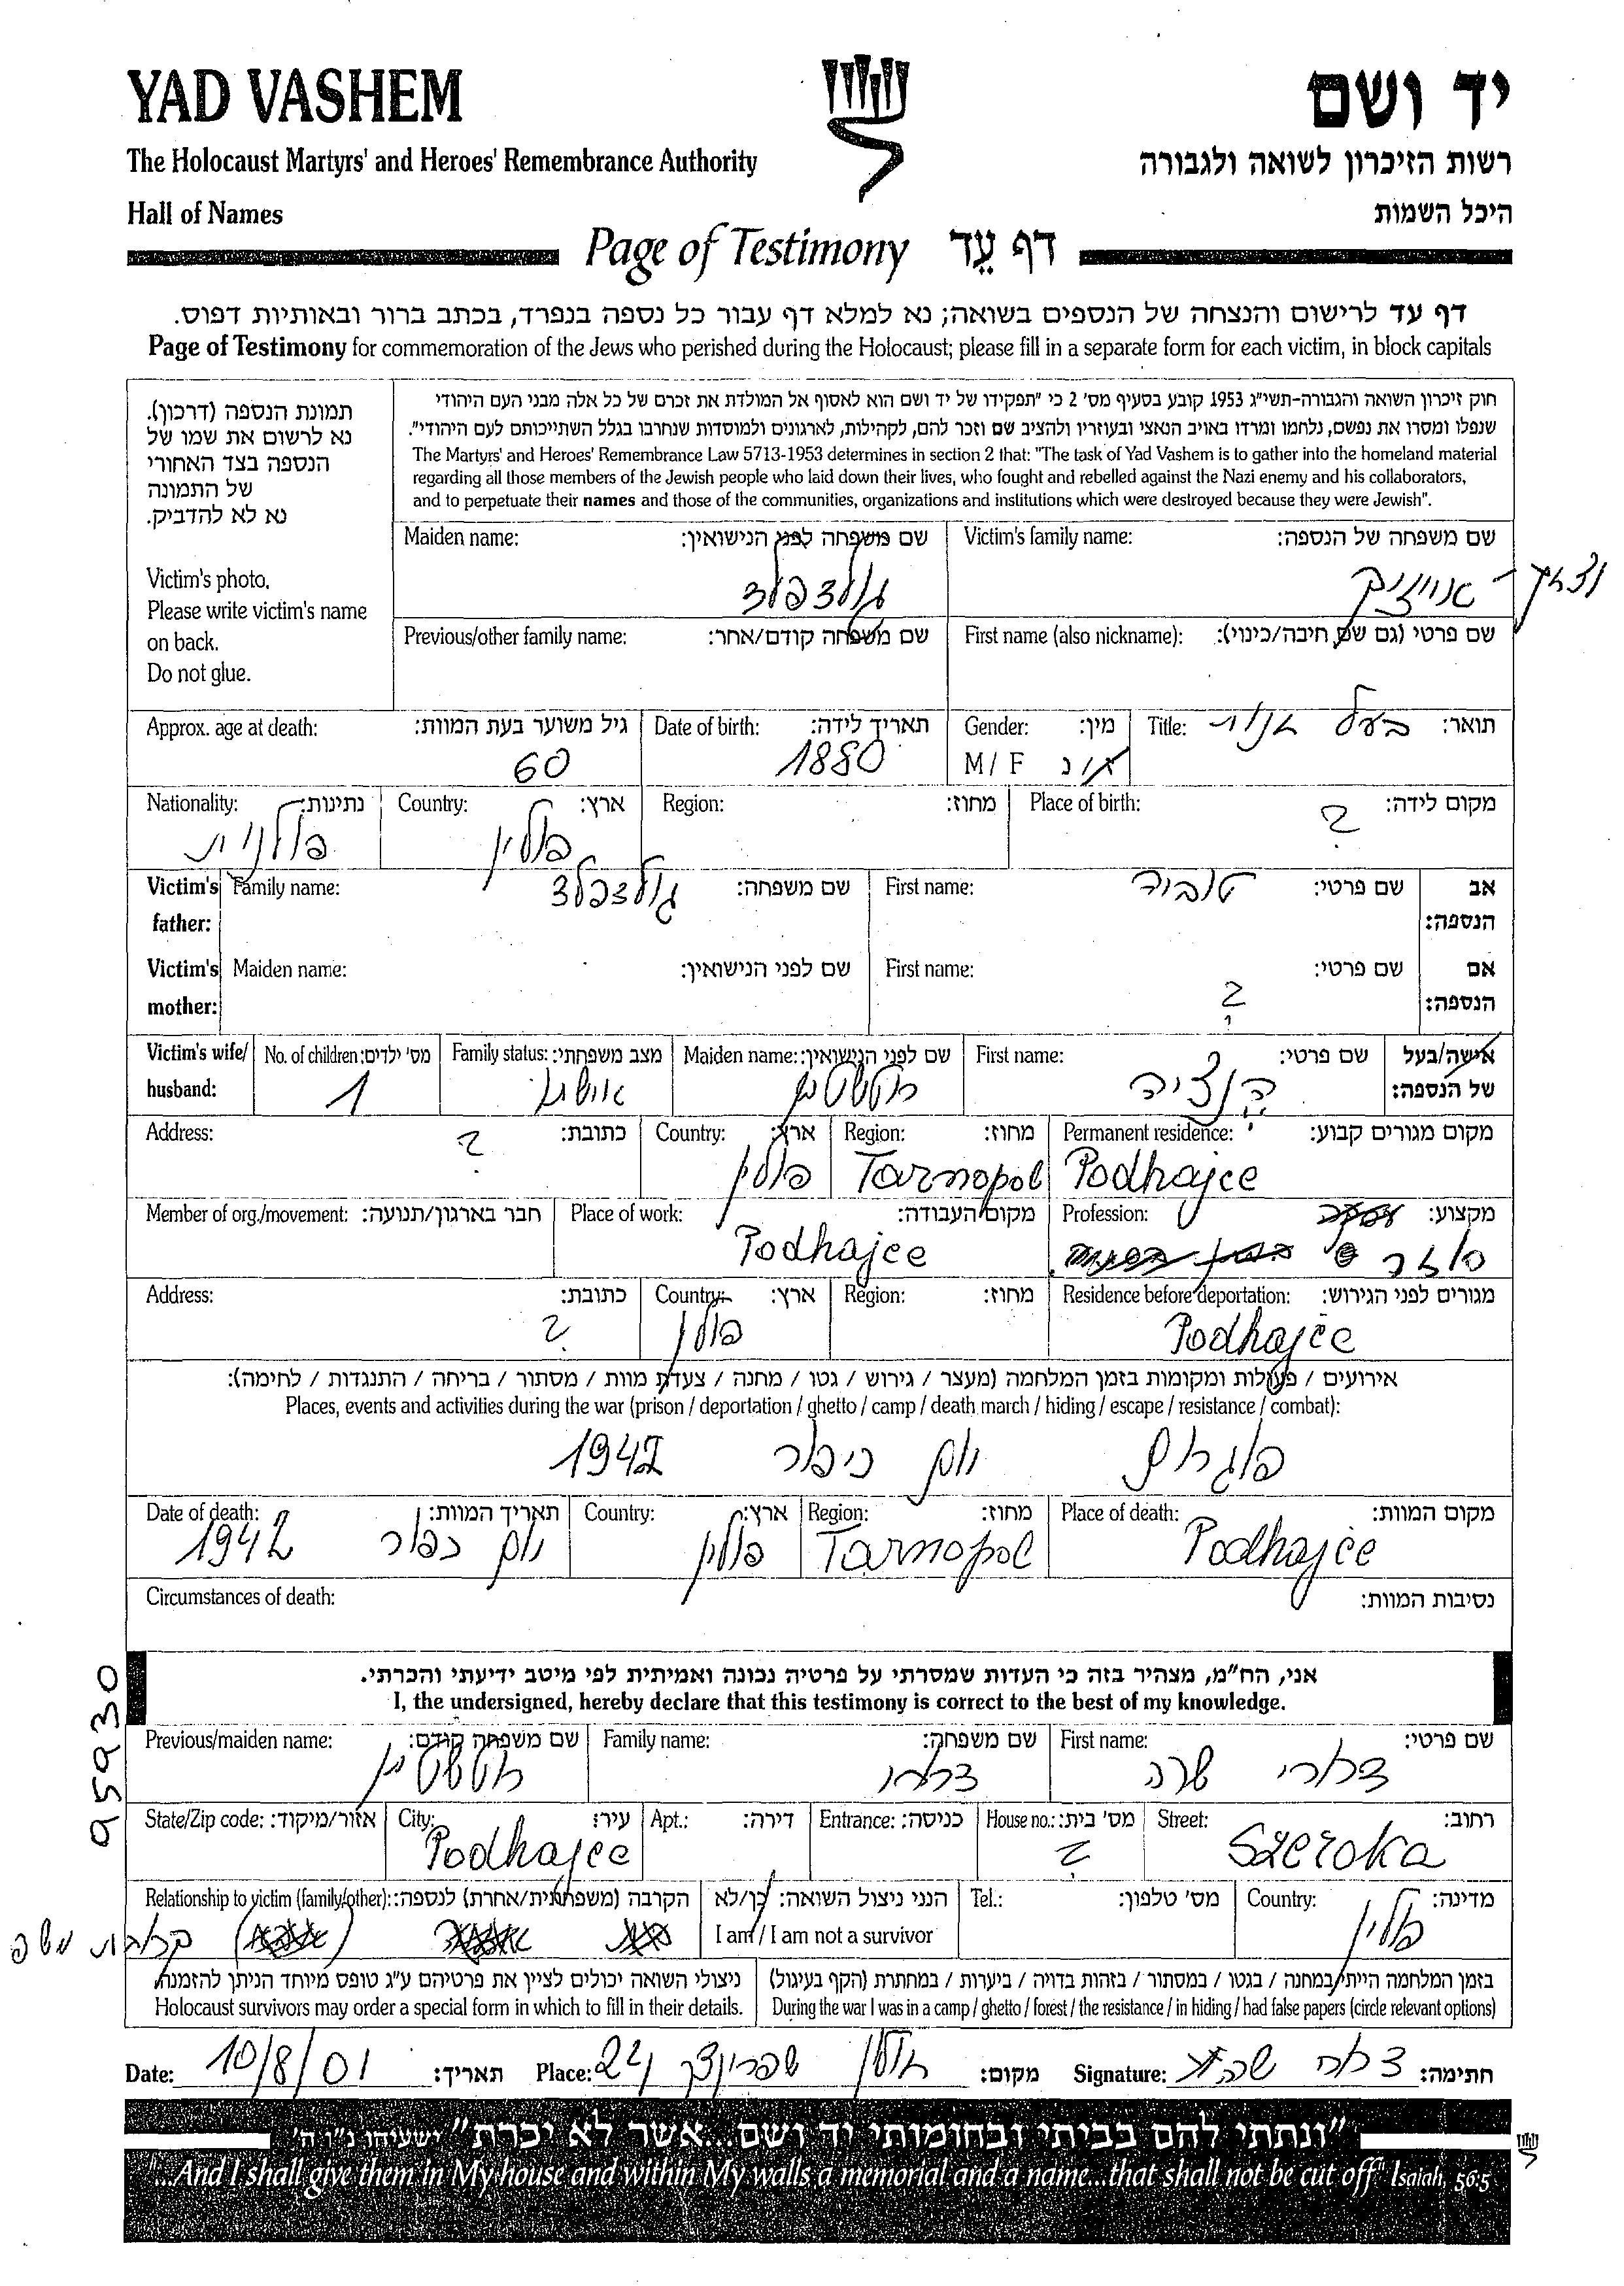 YAD VASHEM
יד ושם
The Holocaust Martyrs' and Heroes' Remembrance Authority
רשות הזיכרון לשואה ולגבורה
Hall of Names
היכל השמות
Page of Testimony דף עֵד
דף עד לרישום והנצחה של הנספים בשואה; נא למלא דף עבור כל נספה בנפרד, בכתב ברור ובאותיות דפוס.
Page of Testimony for commemoration of the Jews who perished during the Holocaust; please fill in a separate form for each victim, in block capitals
תמונת הנספה (דרכון).
נא לרשום את שמו של
הנספה בצד האחורי
של התמונה
נא לא להדביק.
Victim's photo.
Please write victim's name
on back.
Do not glue.
חוק זיכרון השואה והגבורה-תשי"ג 1953 קובע בסעיף מס' 2 כי "תפקידו של יד ושם הוא לאסוף אל המולדת את זכרם של כל אלה מבני העם היהודי
שנפלו ומסרו את נפשם, נלחמו ומרדו באויב הנאצי ובעוזריו ולהציב שם וזכר להם, לקהילות, לארגונים ולמוסדות שנחרבו בגלל השתייכותם לעם היהודי".
The Martyrs' and Heroes' Remembrance Law 5713-1953 determines in section 2 that: "The task of Yad Vashem is to gather into the homeland material
regarding all those members of the Jewish people who laid down their lives, who fought and rebelled against the Nazi enemy and his collaborators,
and to perpetuate their names and those of the communities, organizations and institutions which were destroyed because they were Jewish".
Maiden name: שם משפחה לפני הנישואין: Victim's family name: שם משפחה של הנספה:
גולדפלד
Previous/other family name: שם משפחה קודם/אחר: First name (also nickname): שם פרטי (גם שם חיבה/כינוי):
Approx. age at death: גיל משוער בעת המוות: Date of birth: תאריך לידה: Gender: מין: Title: תואר: בעל חנות
60 1880 M / F ז/נ
Nationality: נתינות: Country: ארץ: Region: מחוז: Place of birth: מקום לידה:
פולנית פולין ?
Victim's father: Family name: שם משפחה: גולדפלד First name: שם פרטי: טוביה אב הנספה:
Victim's mother: Maiden name: שם לפני הנישואין: First name: שם פרטי: ? אם הנספה:
Victim's wife/ husband: No. of children: מס' ילדים: Family status: מצב משפחתי: Maiden name: שם לפני הנישואין: First name: שם פרטי: אישה/בעל של הנספה:
1 רוטשטיין
Address: כתובת: Country: ארץ: Region: מחוז: Permanent residence: מקום מגורים קבוע:
? פולין Tarnopol Podhajce
Member of org./movement: חבר בארגון/תנועה: Place of work: מקום העבודה: Profession: מקצוע:
Podhajce
Address: כתובת: Country: ארץ: Region: מחוז: Residence before deportation: מגורים לפני הגירוש:
? פולין Podhajce
אירועים / פעולות ומקומות בזמן המלחמה (מעצר / גירוש / גטו / מחנה / צעדת מוות / מסתור / בריחה / התנגדות / לחימה):
Places, events and activities during the war (prison / deportation / ghetto / camp / death march / hiding / escape / resistance / combat):
פוגרום יום כיפור 1942
Date of death: תאריך המוות: Country: ארץ: Region: מחוז: Place of death: מקום המוות:
יום כפור 1942 פולין Tarnopol Podhajce
Circumstances of death: נסיבות המוות:
אני, הח"מ, מצהיר בזה כי העדות שמסרתי על פרטיה נכונה ואמיתית לפי מיטב ידיעתי והכרתי.
I, the undersigned, hereby declare that this testimony is correct to the best of my knowledge.
95930
Previous/maiden name: שם משפחה קודם: Family name: שם משפחה: First name: שם פרטי:
רוטשטיין שרה
State/Zip code: אזור/מיקוד: City: עיר: Apt.: דירה: Entrance: כניסה: House no.: מס' בית: Street: רחוב:
Podhajce ? Szeroka
Relationship to victim (family/other): הקרבה (משפחתית/אחרת) לנספה: הנני ניצול השואה: כן/לא Tel.: מס' טלפון: Country: מדינה:
קרובת משפ I am / I am not a survivor פולין
ניצולי השואה יכולים לציין את פרטיהם ע"ג טופס מיוחד הניתן להזמנה. בזמן המלחמה הייתי במחנה / בגטו / במסתור / בזהות בדויה / ביערות / במחתרת (הקף בעיגול)
Holocaust survivors may order a special form in which to fill in their details. During the war I was in a camp / ghetto / forest / the resistance / in hiding / had false papers (circle relevant options)
Date: 10/8/01 תאריך: Place: חולון שפרינצק 24 מקום: Signature: חתימה:
"ונתתי להם בביתי ובחומותי יד ושם...אשר לא יכרת" ישעיהו נ"ו ה'
"...And I shall give them in My house and within My walls a memorial and a name...that shall not be cut off" Isaiah, 56:5